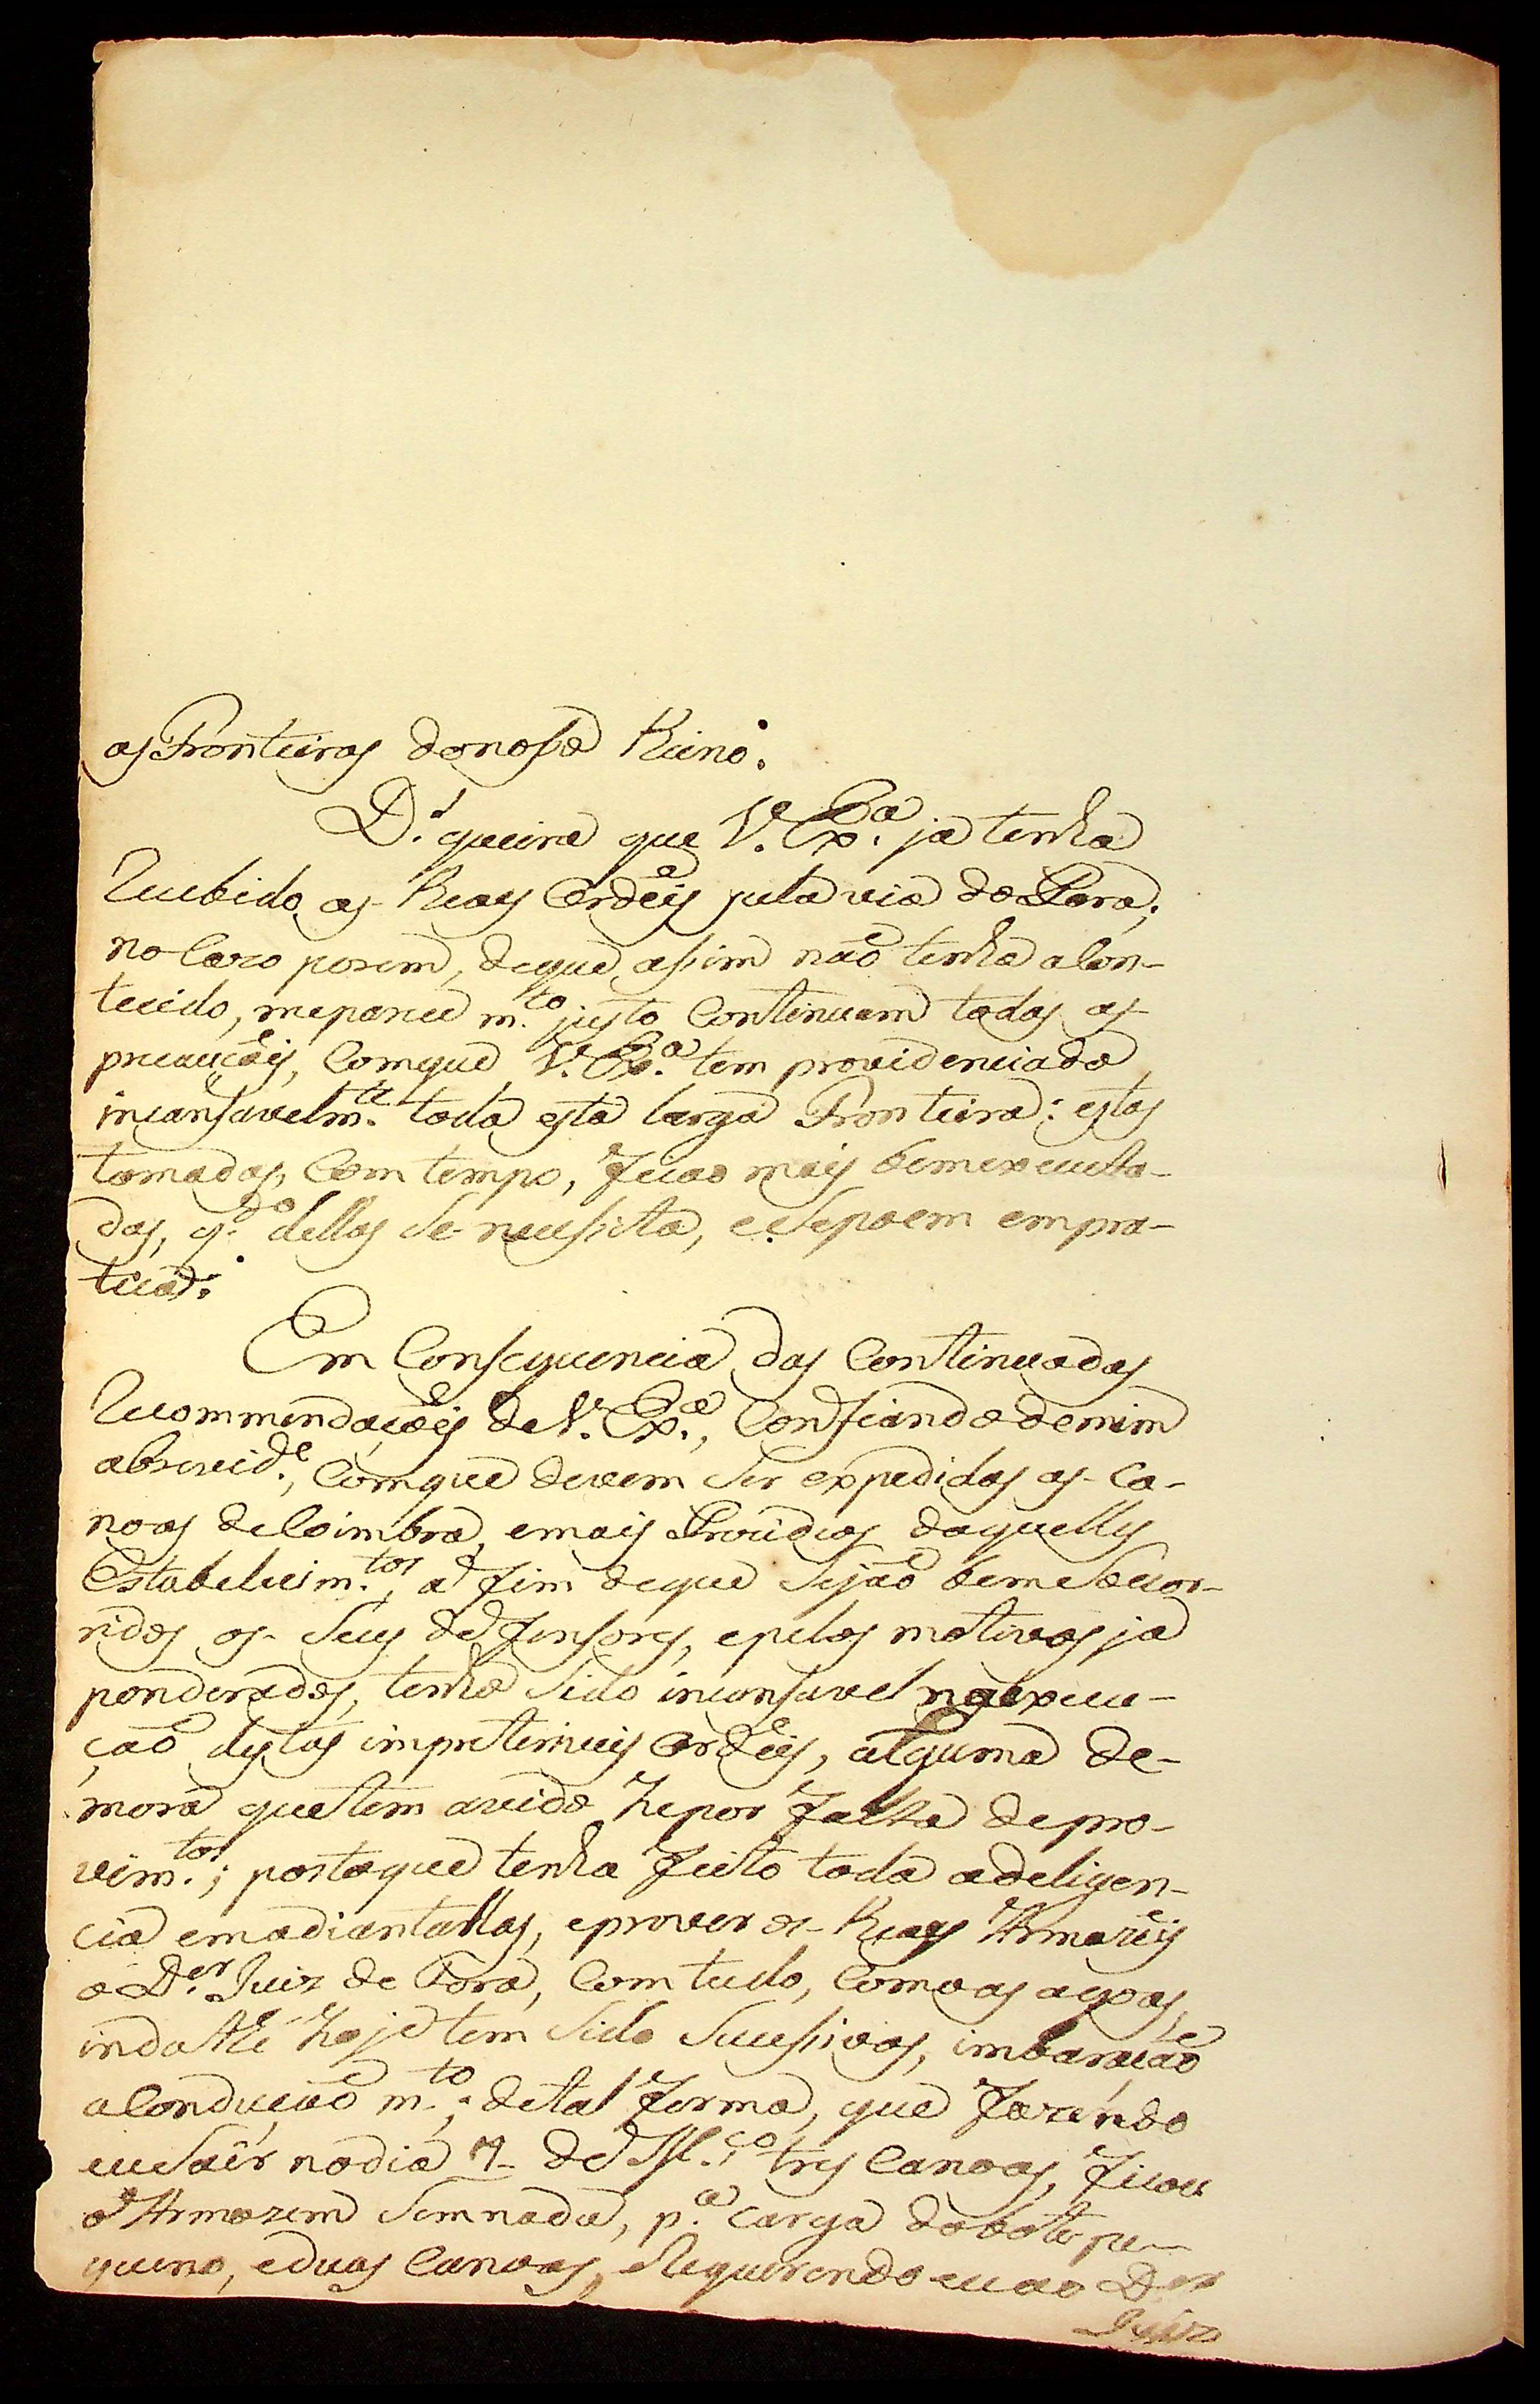 as Fronteiras donosso Reino.
D.s queira que V. Ex.ª ja tenha
Recebido as Reaes Ordẽis pela via do Pará;
no Cazo porem, deque assim não tenha acon-
tecido, meparece m.to justo Continuem todas as
precauçõis, Comque V. Ex.ª tem providenciado
incansavelm.te toda esta larga Fronteira: estas
tomadas, Com tempo, ficao mais bemexecuta-
das, q.do dellas se necessita, esepoem empra-
tica.
Em Consequencia das Continuadas
Recommendaçõis de V. Ex.ª, Confiando demim
abrevid.e, Comque devem Ser expedidas as Ca-
noas deCoimbra, emais Prezidios daquelles
Estabelecim.tos, a fim deque Sejão bemesocor-
ridos os Seus defensores, epelos motivos ja
ponderados, tenho Sido incansavel naexecu-
ção destas impreteriveis Ordẽis, alguma de-
mora quetem avido hepor falta depro-
vim.tos; postoque tenha feito toda adeligen-
cia emadiantallas, eprover os Reaes Armazẽis
o D.or Juiz de Fora, Com tudo, Comoas agoas,
indathé hoje tem Sido Sucessivas, imbaração
aCondução m.to; detal forma, que fazendo
eusair nodia 7 de M.ço tres Canoas, ficou
o Armazem Semnada, p.ª carga dobote pe-
queno, eduas Canoas, eRequerendo euao D.or
Juiz